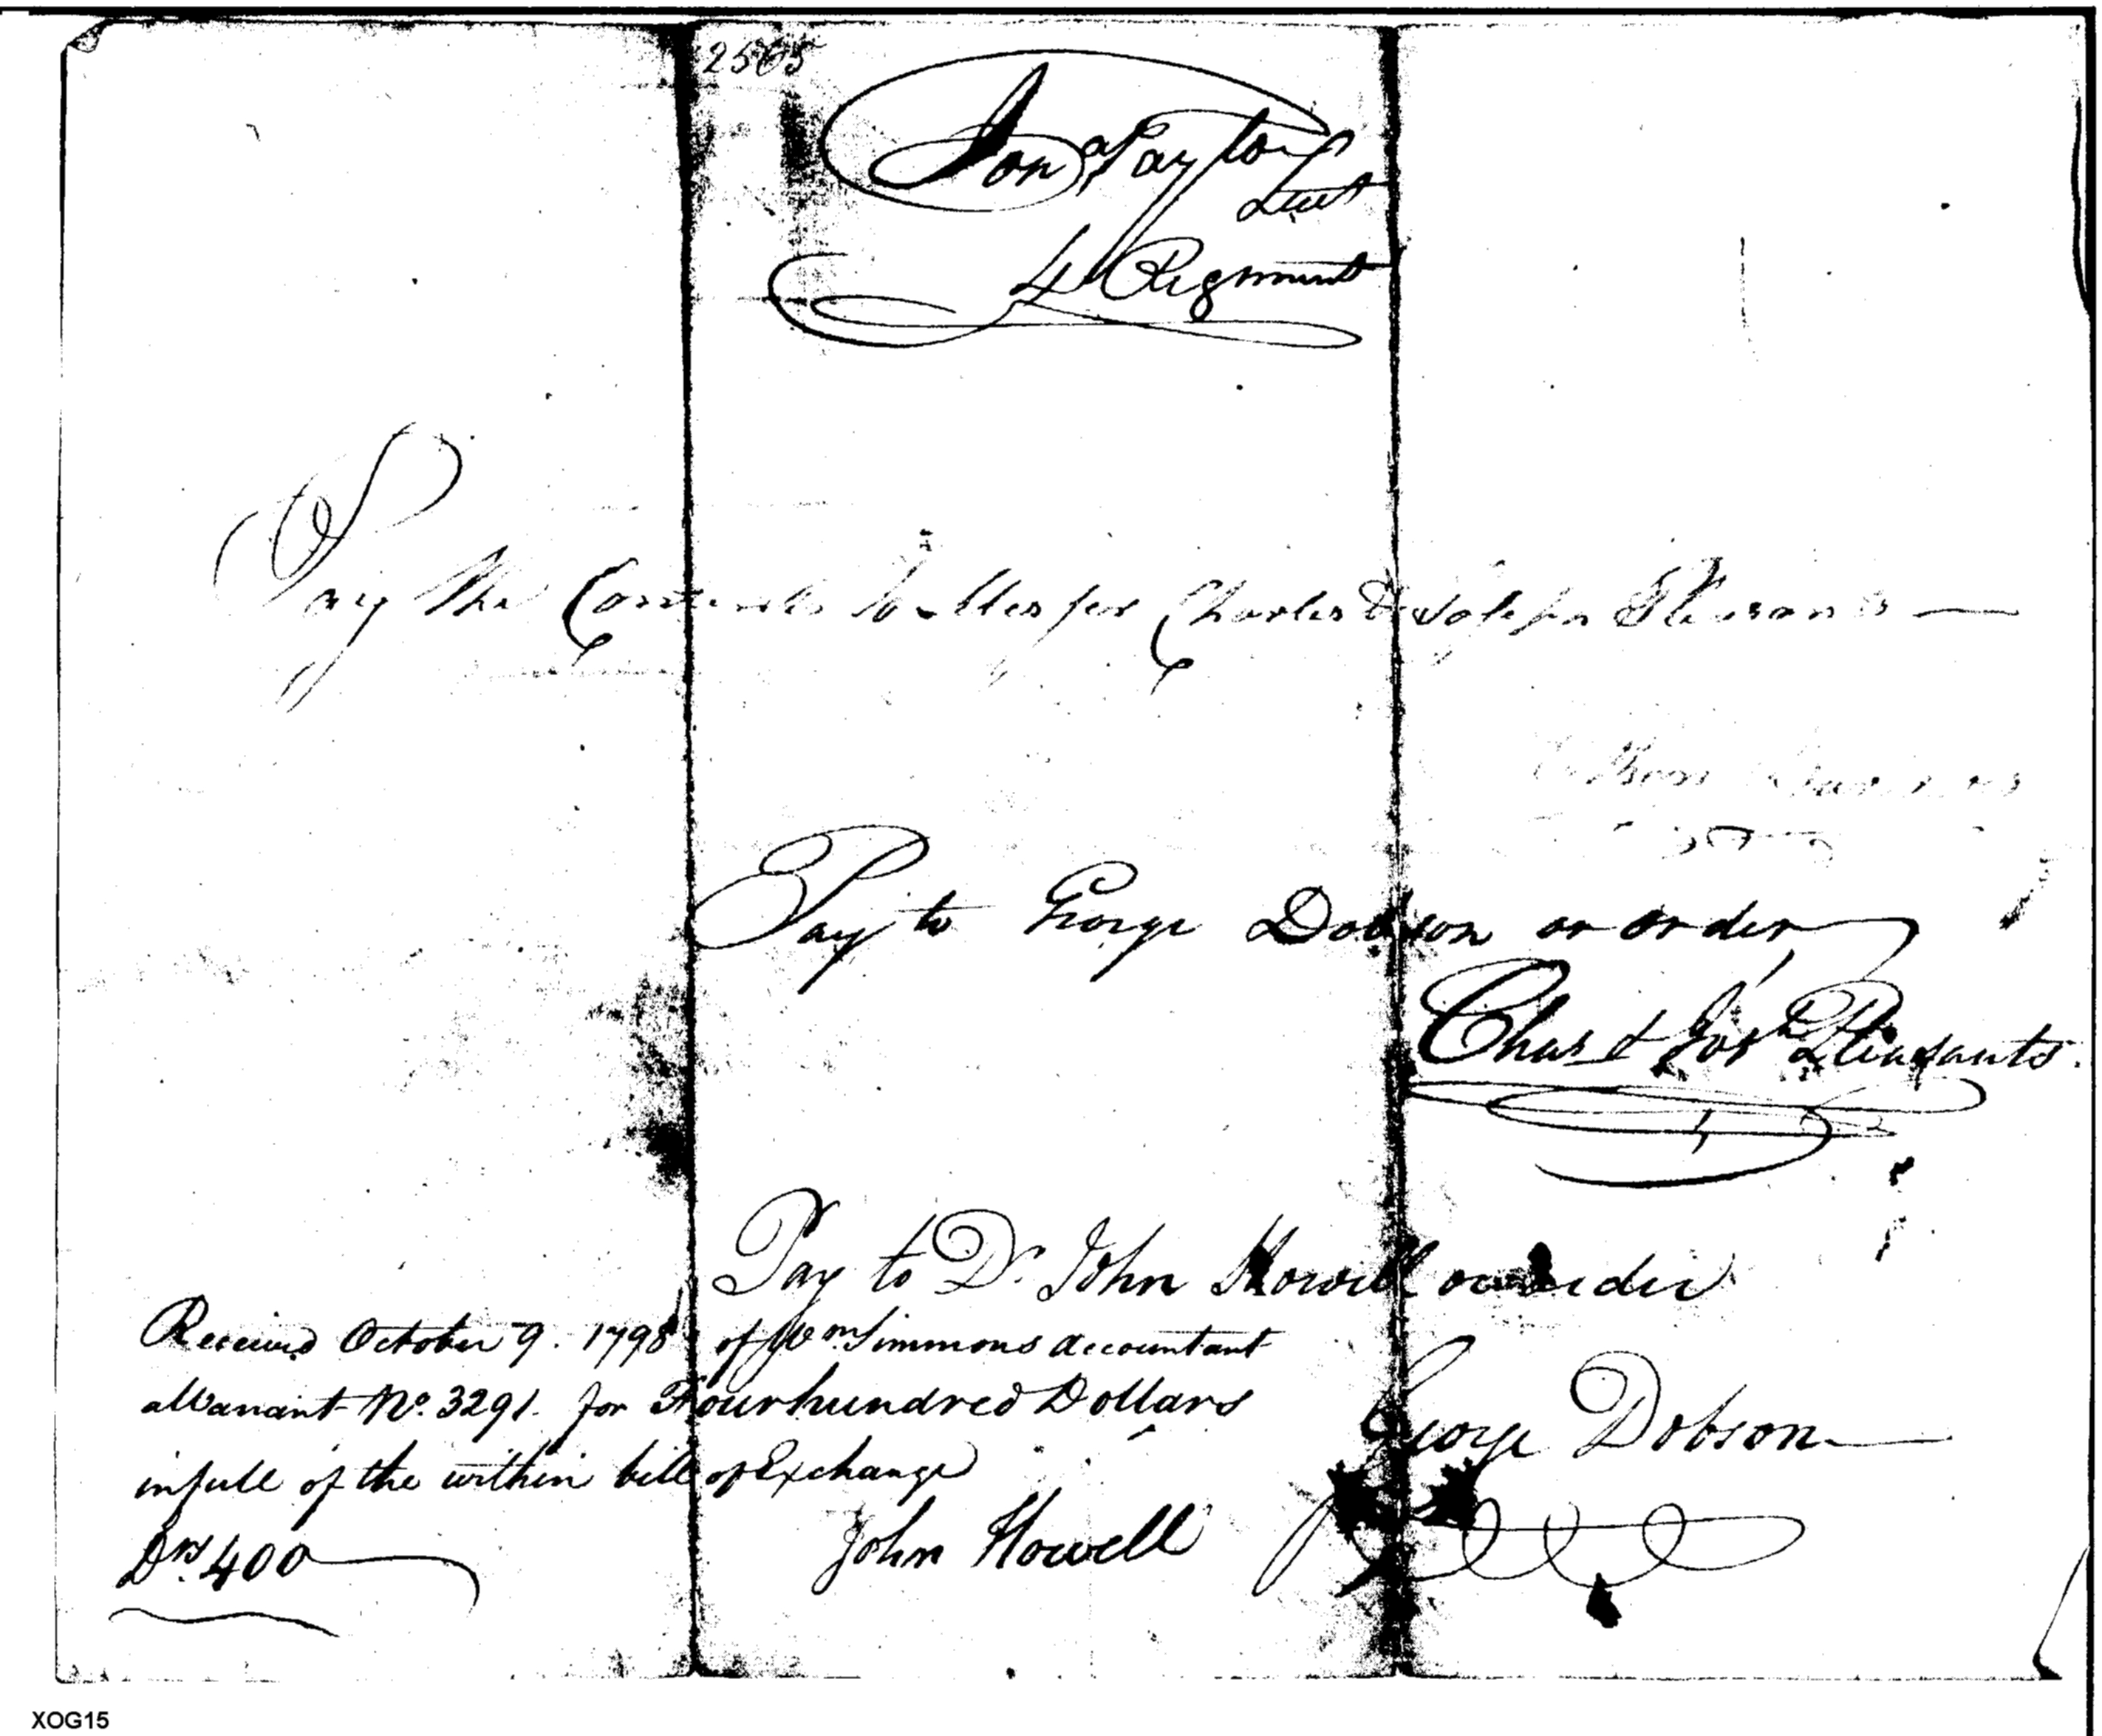 2565
Jonª Taylor
Lieut
4 Regiment
Pay the Contents to Messrs Charles & Joseph Pleasants —
Pay to George Dobson or order
Chas & Josh Pleasants.
Pay to Dr. John Howell or order
Received October 9. 1798 of Wm Simmons Accountant
a Warrant No. 3291. for Four hundred Dollars
in full of the within bill of Exchange
George Dobson
John Howell
Drs 400
XOG15